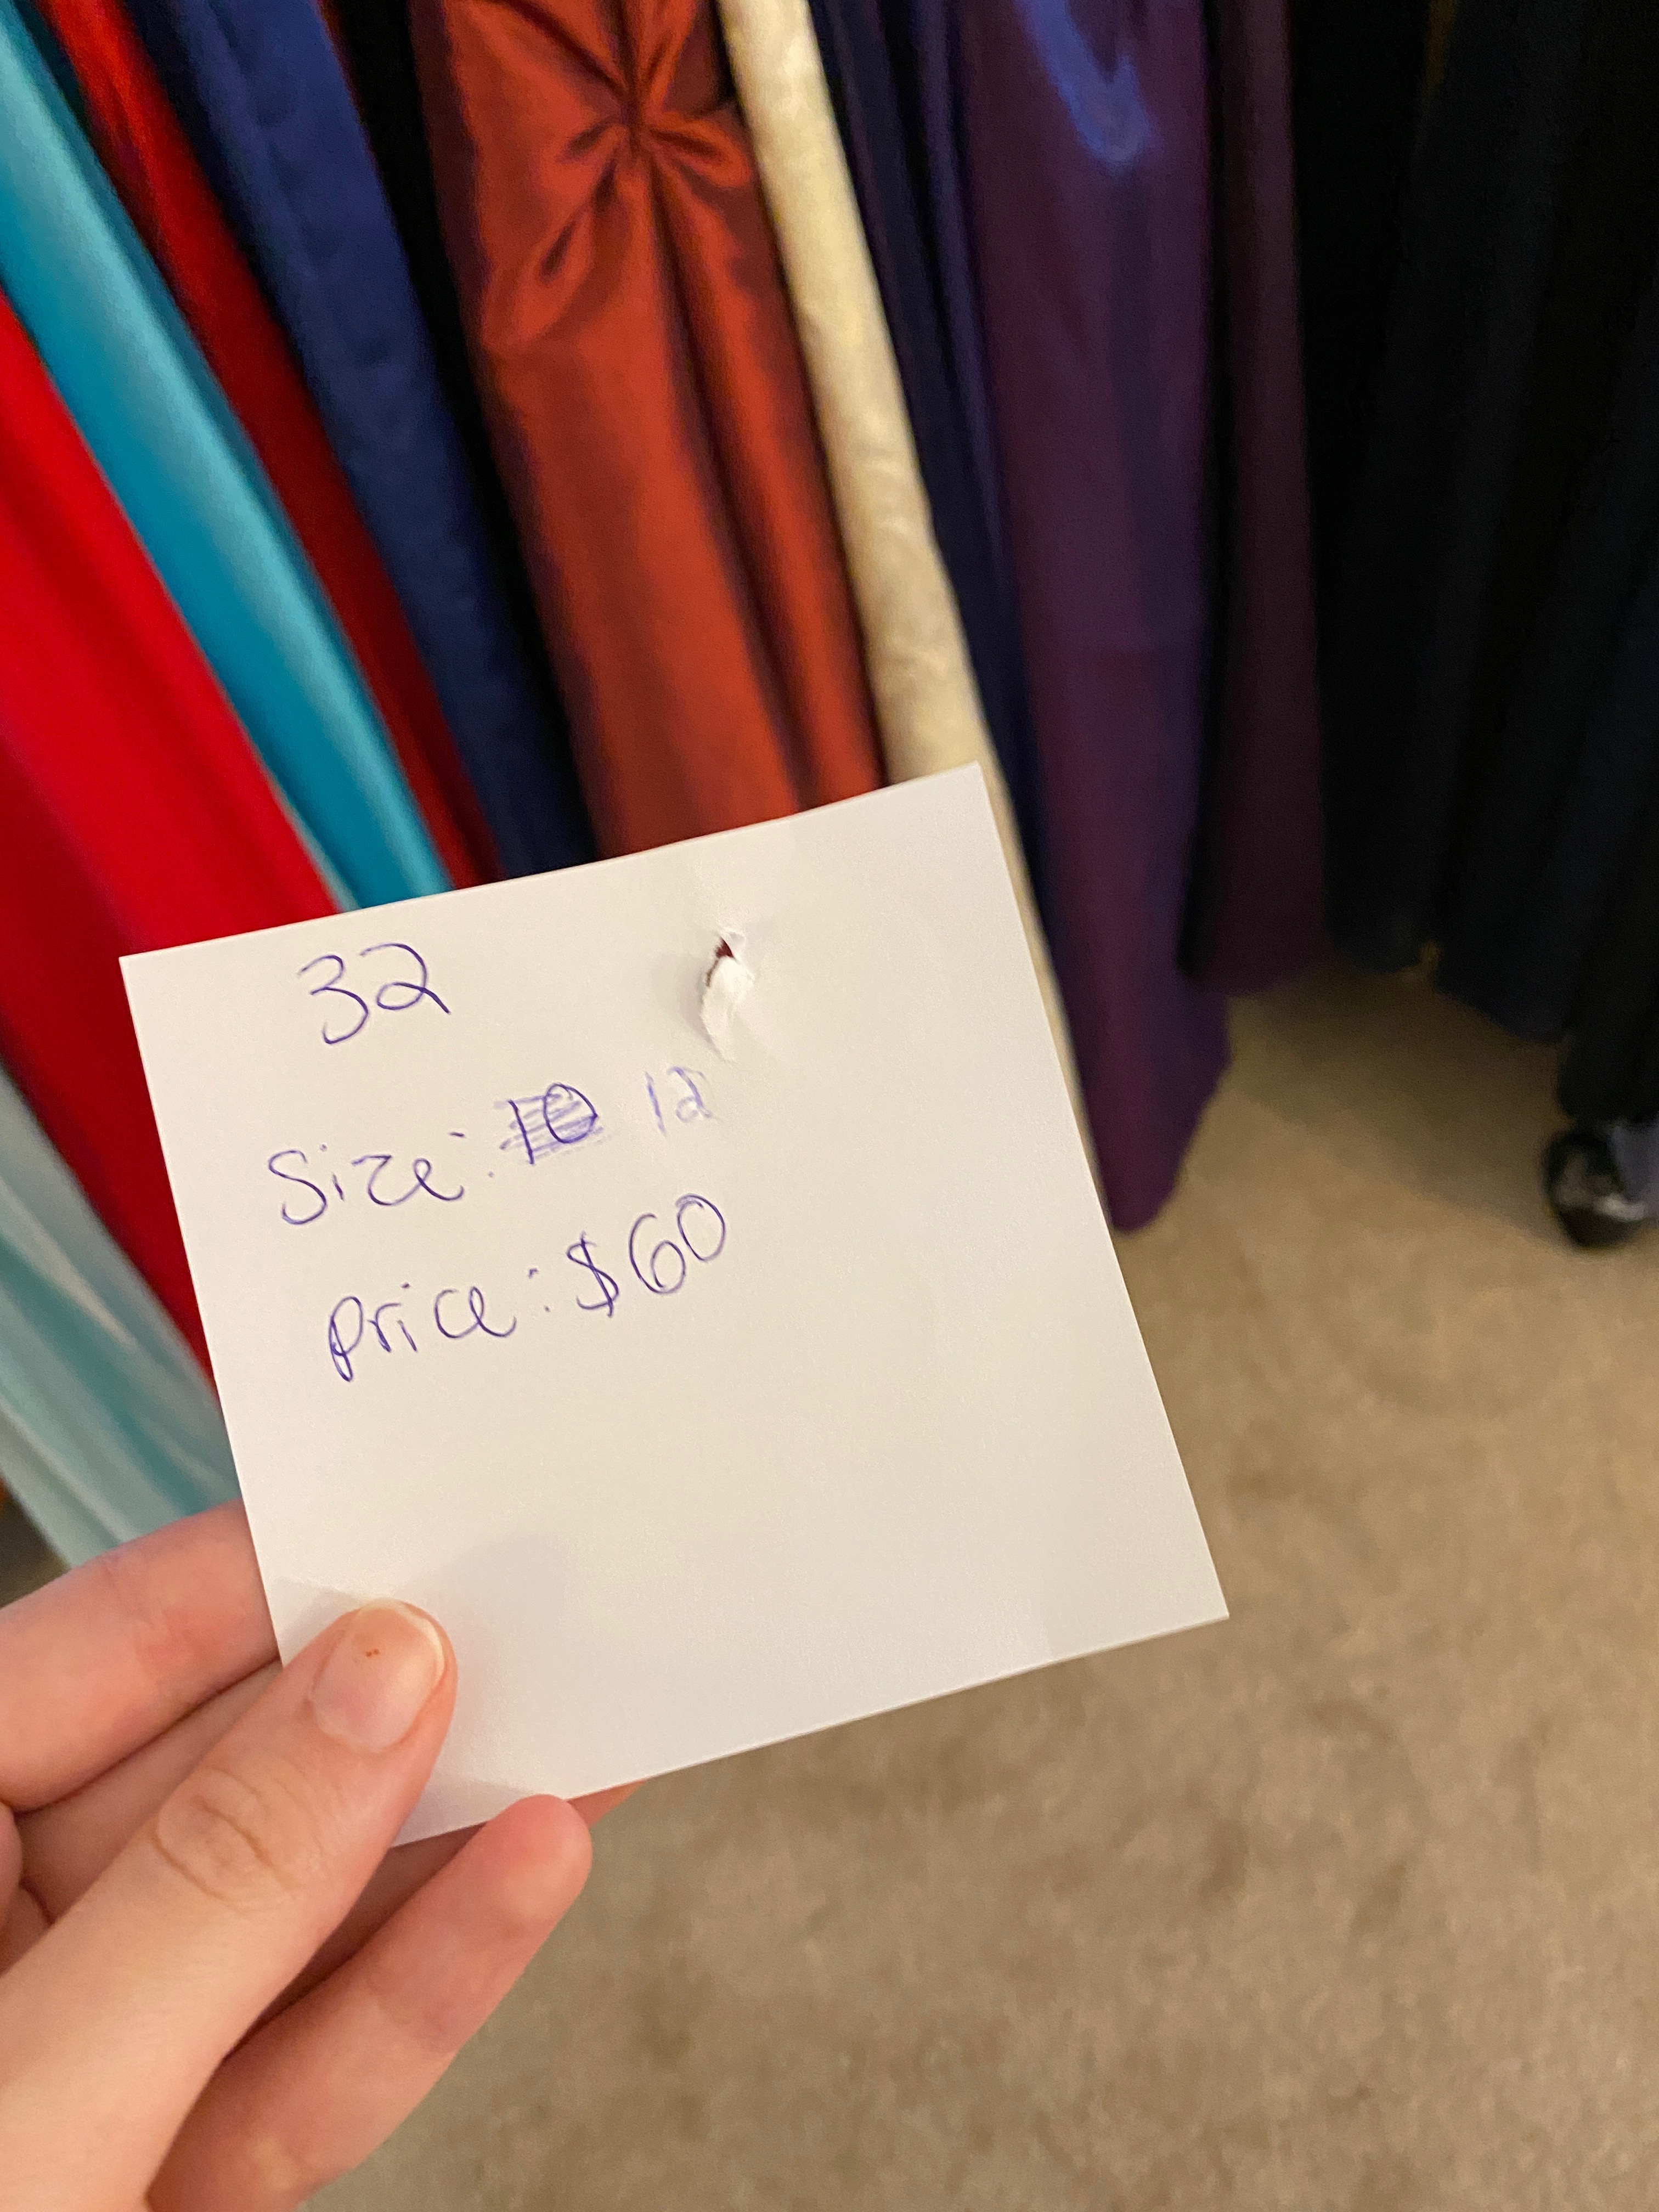 32
Size: 10 12
Price: $60